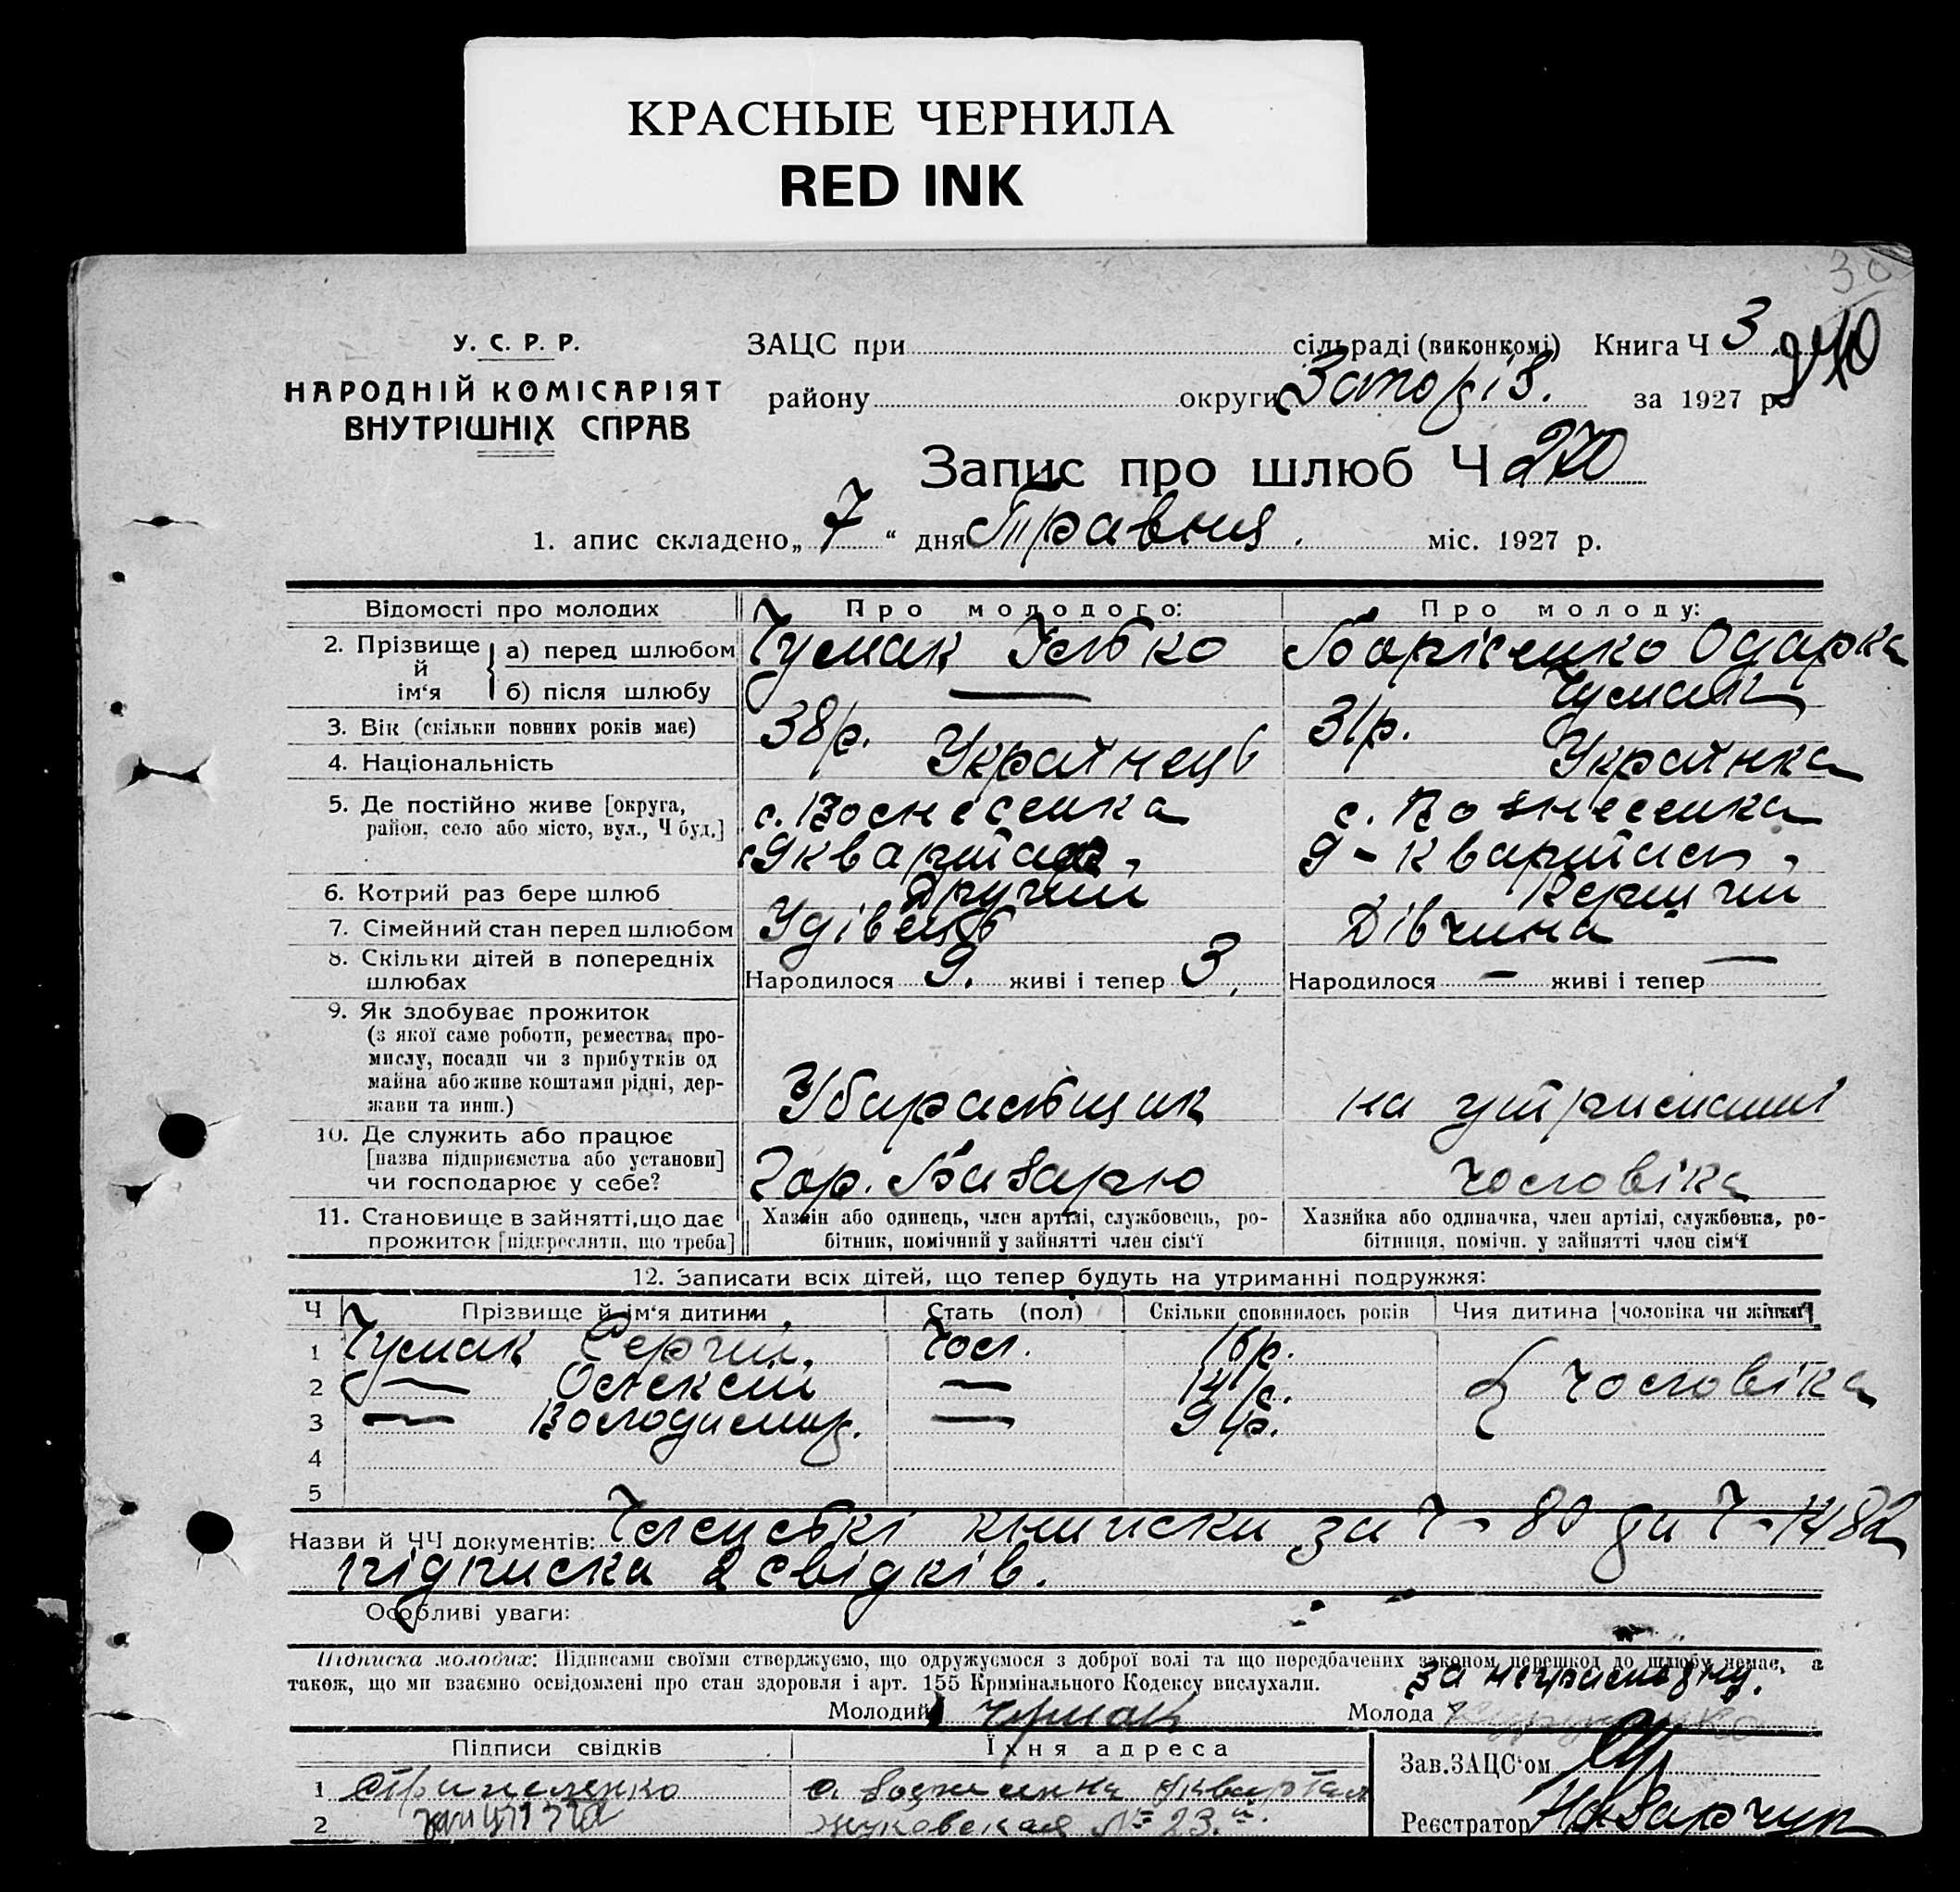 КРАСНЫЕ ЧЕРНИЛА
RED INK
30
У. С. Р. Р.
НАРОДНІЙ КОМІСАРІЯТ
ВНУТРІШНІХ СПРАВ
ЗАЦС при сільраді (виконкомі) Книга Ч 3
району округи Запоріз. за 1927 р.
Запис про шлюб Ч 270
1. апис складено „ 7 “ дня Травня . міс. 1927 р.
Відомості про молодих Про молодого: Про молоду:
2. Прізвище й ім‘я а) перед шлюбом Чумак Улько Борісенко Одарка
б) після шлюбу — Чумак
3. Вік (скільки повних років має) 38 р. 31 р.
4. Національність Українець Українка
5. Де постійно живе [округа, район, село або місто, вул., Ч буд.] с. Воснесенка с. Вознесенка
9 квартал, 9 - квартал,
6. Котрий раз бере шлюб Другий Перший
7. Сімейний стан перед шлюбом Удівець Дівчина
8. Скільки дітей в попередніх шлюбах Народилося 9. живі і тепер 3, Народилося — живі і тепер —
9. Як здобуває прожиток
(з якої саме роботи, ремества, про-
мислу, посади чи з прибутків од
майна або живе коштами рідні, дер-
жави та инш.) Убиральщик на утриманні
10. Де служить або працює
[назва підприємства або установи]
чи господарює у себе? Гор. Базарю чоловіка
11. Становище в зайнятті, що дає Хазяїн або одинець, член артілі, службовець, ро- Хазяйка або одиначка, член артілі, службовка, ро-
прожиток [підкреслити, що треба] бітник, помічний у зайнятті член сім‘ї бітниця, помічн. у зайнятті член сім‘ї
12. Записати всіх дітей, що тепер будуть на утриманні подружжя:
Ч Прізвище й ім‘я дитини Стать (пол) Скільки сповнилось років Чия дитина [чоловіка чи жінки]
1 Чумак Сергій, Чол. 16 р.
2 — Олексій — 14 р. чоловіка
3 — Володимир. — 9 р.
4
5
Назви й ЧЧ документів: Членські книжки за Ч - 80 да Ч - 1482
підписка 2 свідків.
Особливі уваги:
Підписка молодих: Підписами своїми стверджуємо, що одружуємося з доброї волі та що передбачених законом перешкод до шлюбу немає, а
також, що ми взаємно освідомлені про стан здоровля і арт. 155 Кримінального Кодексу вислухали.
за неграмотну.
Молодий Чумак Молода
Підписи свідків Їхня адреса Зав. ЗАЦС‘ом
1 с.
2 жуковская № 23. Реєстратор Назарчук